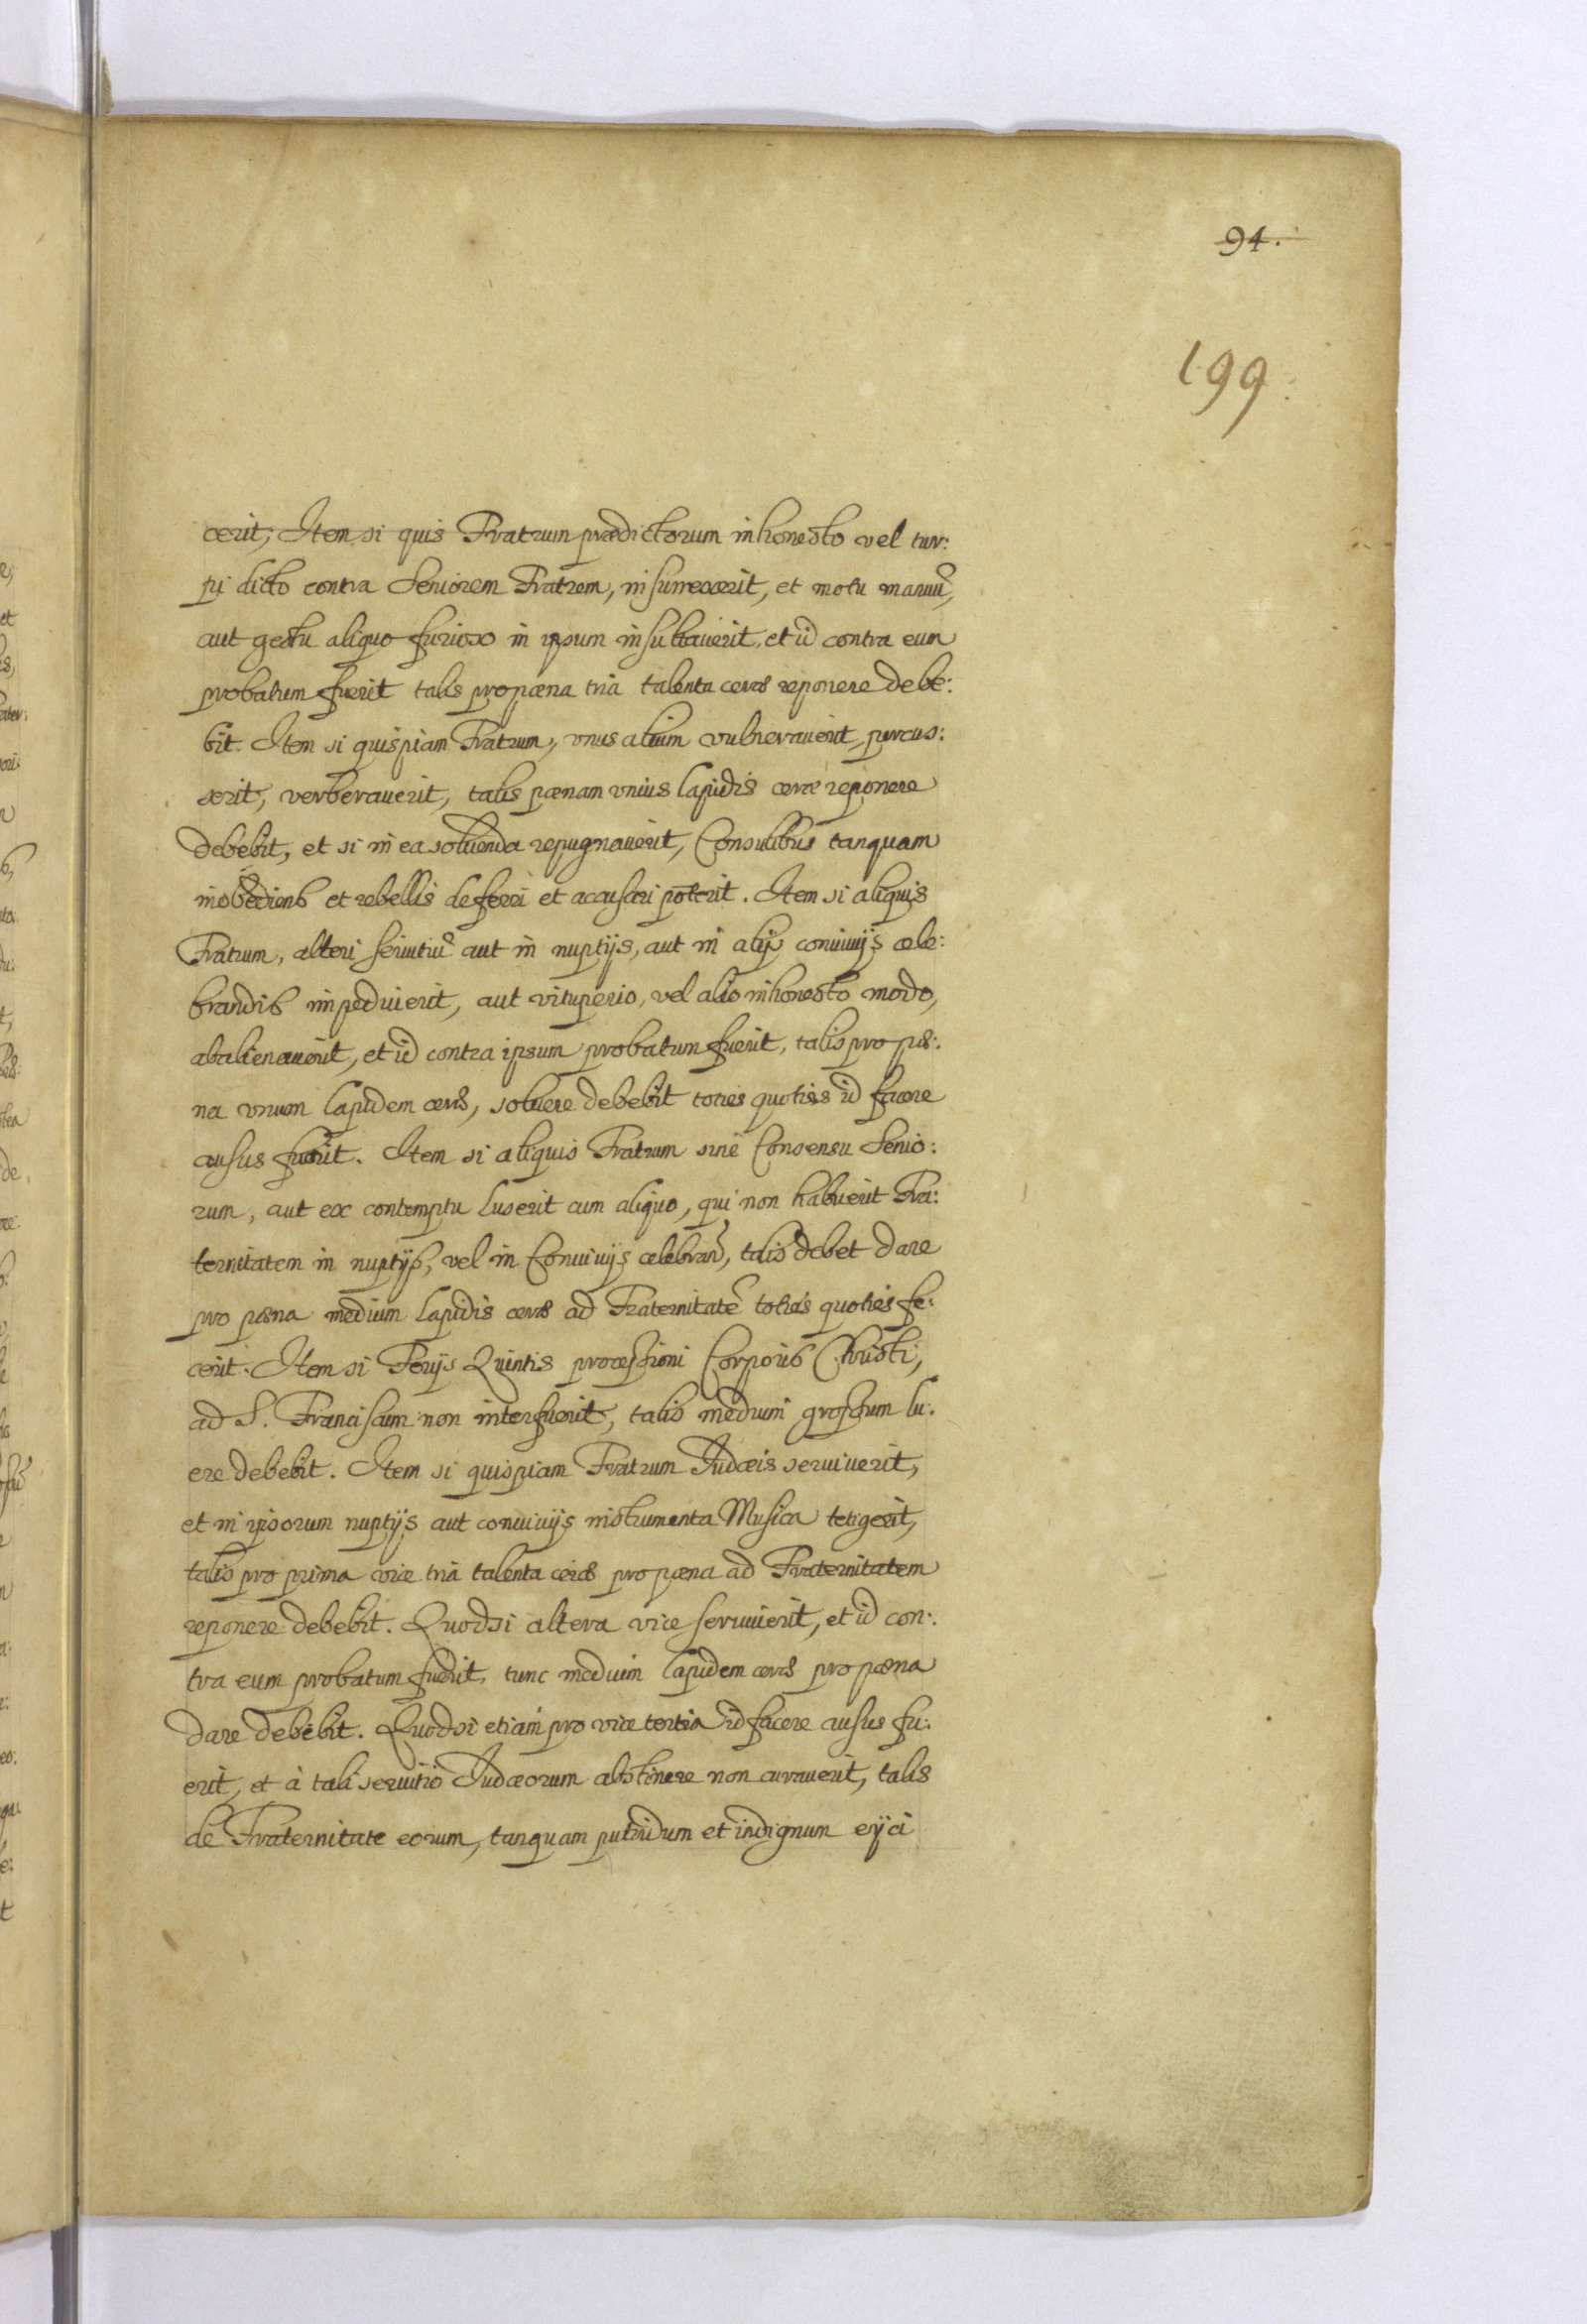 94.
199.
cerit; Item si quis Fratrum prædictorum inhonesto vel tur:
pi dicto contra Seniorem Fratrem, insurrexerit, et motu manuũ,
aut gestu aliquo furioso in ipsum insultaverit, et id contra eum
probatum fuerit talis pro pæna tria talenta ceræ reponere debe:
bit. Item si quispiam Fratrum, vnus alium vulneraverit, percus:
serit, verberauerit, talis pænam vnius lapidis ceræ reponere
debebit, et si in ea soluenda repugnauerit, Consulibus tanquam
inobediens et rebellis deferri et accusari poterit. Item si aliquis
Fratrum, alteri seruitiũ aut in nuptijs, aut in alijs conuiuijs cele:
brandis impediuerit, aut vituperio, vel alio inhonesto modo,
abalienauerit, et id contra ipsum probatum fuerit, talis pro pæ:
na vnum lapidem ceræ, soluere debebit toties quoties id facere
ausus fuerit. Item si aliquis Fratrum sine Consensu Senio:
rum, aut ex contemptu luserit cum aliquo, qui non habuerit Fra:
ternitatem in nuptijs, vel in Conuiuijs celebran̄, talis debet dare
pro pæna medium lapidis ceræ ad Fraternitatẽ toties quoties fe:
cerit. Item si Ferijs Quintis processioni Corporis Christi,
ad S. Franciscum non interfuerit, talis medium grossum lu:
ere debebit. Item si quispiam Fratrum Judæis seruiuerit,
et in ipsorum nuptijs aut conuiuijs instrumenta Musica tetigerit,
talis pro prima vice tria talenta ceræ pro pæna ad Fraternitatem
reponere debebit. Quodsi altera vice seruiuierit, et id con:
tra eum probatum fuerit, tunc medium lapidem ceræ pro pæna
dare debebit. Quodsi etiam pro vice tertia id facere ausus fu:
erit, et à tali seruitio Judæorum abstinere non curauerit, talis
de Fraternitate eorum, tanquam putridum et indignum eijci